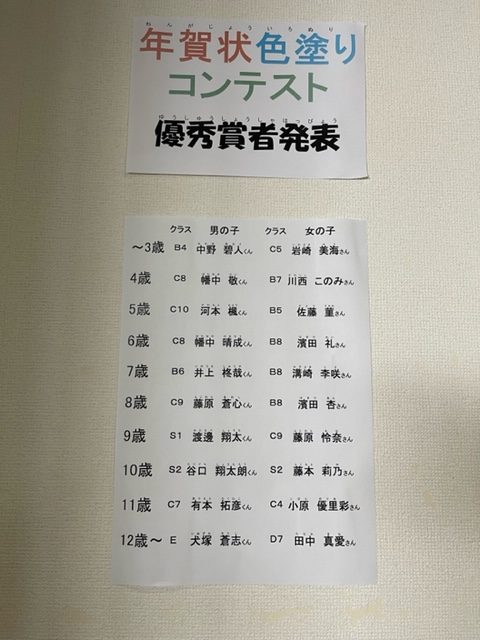 年賀状色塗り
コンテスト
優秀賞者発表
クラス 男の子 クラス 女の子
～3歳 B4 中野 碧人くん C5 岩崎 美海さん
4歳 C8 幡中 敬くん B7 川西 このみさん
5歳 C10 河本 楓くん B5 佐藤 菫さん
6歳 C8 幡中 晴成くん B8 濱田 礼さん
7歳 B6 井上 柊哉くん B8 溝崎 李咲さん
8歳 C9 藤原 蒼心くん B8 濱田 杏さん
9歳 S1 渡邊 翔太くん C9 藤原 怜奈さん
10歳 S2 谷口 翔太朗くん S2 藤本 莉乃さん
11歳 C7 有本 拓彦くん C4 小原 優里彩さん
12歳～ E 犬塚 蒼志くん D7 田中 真愛さん